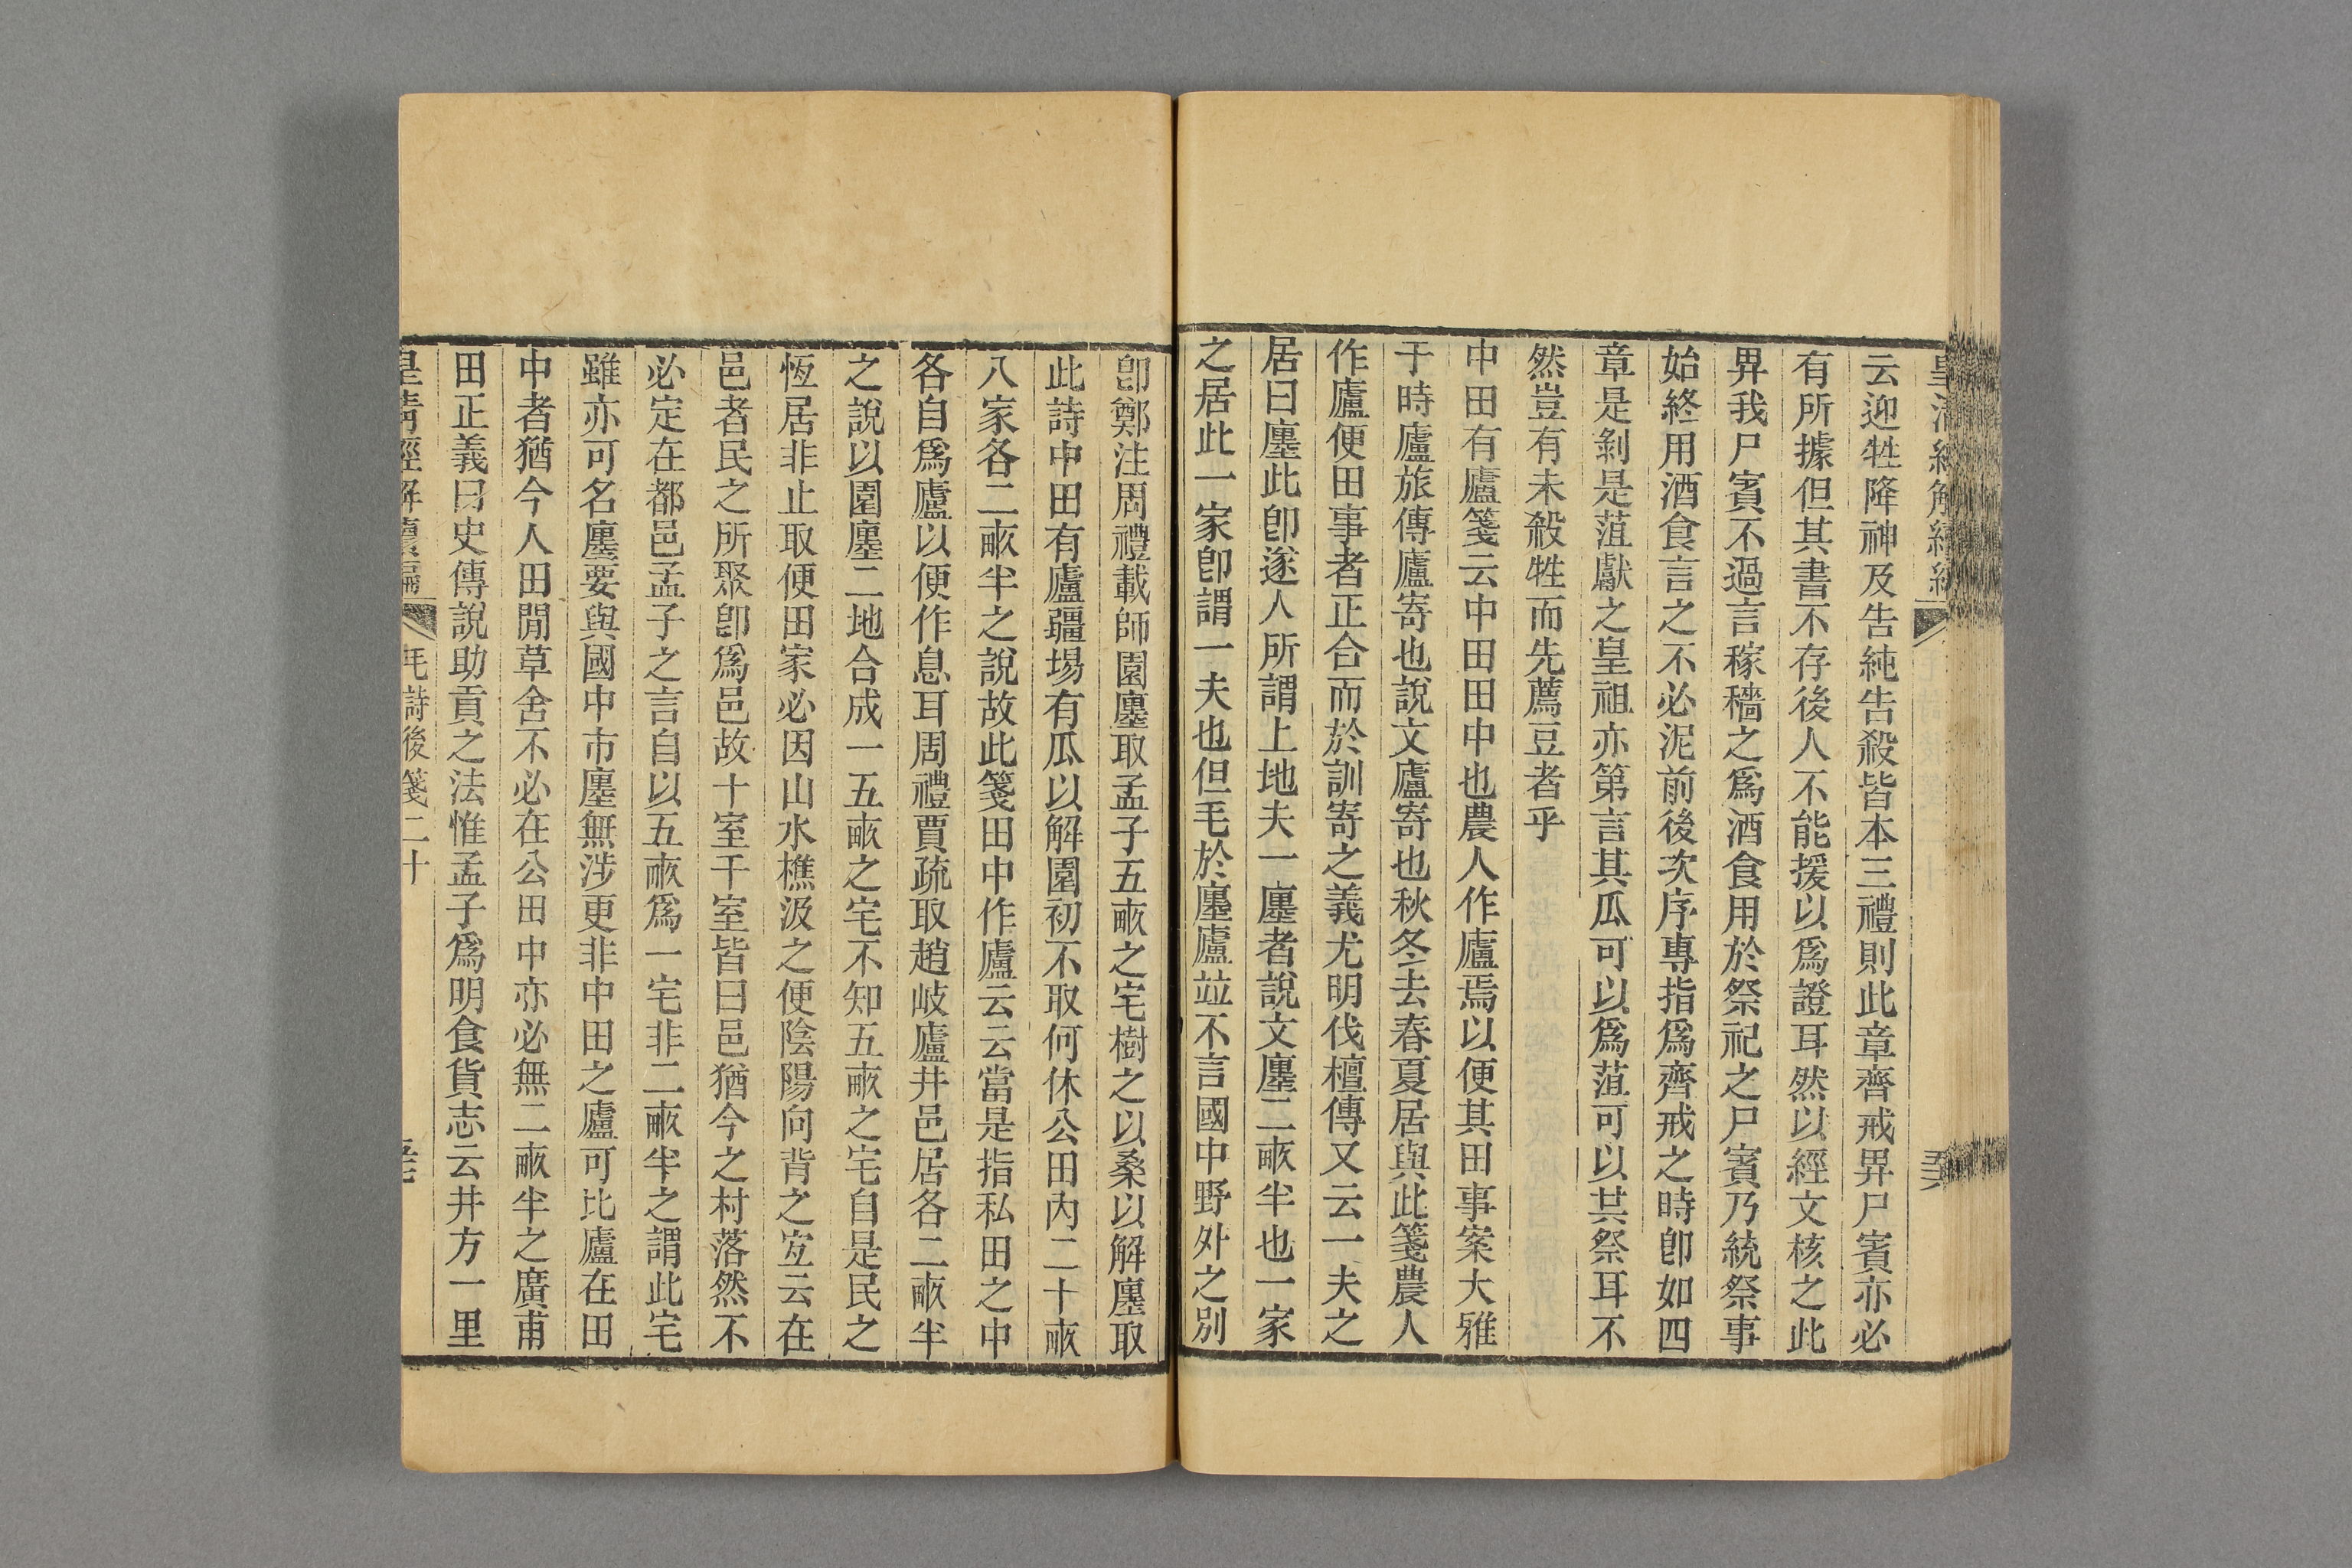 云迎牲降神及告純告殺皆本三禮則此章齊戒畀尸賓亦必
有所據但其書不存後人不能援以爲證耳然以經文核之此
畀我尸賓不過言稼穡之爲酒食用於祭祀之尸賓乃統祭事
始終用酒食言之不必泥前後次序專指爲齊戒之時卽如四
章是剝是菹獻之皇祖亦第言其瓜可以爲菹可以共祭耳不
然豈有未殺牲而先薦豆者乎
中田有廬箋云中田田中也農人作廬焉以便其田事案大雅
于時廬旅傳廬寄也說文廬寄也秋冬去春夏居與此箋農人
作廬便田事者正合而於訓寄之義尤明伐檀傳又云一夫之
居曰廛此卽遂人所謂上地夫一廛者說文廛二畞半也一家
之居此一家卽謂一夫也但毛於廛廬竝不言國中野外之別
卽鄭注周禮載師園廛取孟子五畞之宅樹之以桑以解廛取
此詩中田有廬疆埸有瓜以解園初不取何休公田內二十畞
八家各二畞半之說故此箋田中作廬云云當是指私田之中
各自爲廬以便作息耳周禮賈疏取趙岐廬井邑居各二畞半
之說以園廛二地合成一五畞之宅不知五畞之宅自是民之
恆居非止取便田家必因山水樵汲之便陰陽向背之宐云在
邑者民之所聚卽爲邑故十室千室皆曰邑猶今之村落然不
必定在都邑孟子之言自以五畞爲一宅非二畞半之謂此宅
雖亦可名廛要與國中市廛無涉更非中田之廬可比廬在田
中者猶今人田閒草舍不必在公田中亦必無二畞半之廣甫
田正義曰史傳說助貢之法惟孟子爲明食貨志云井方一里
皇清經解續編 毛詩後箋二十